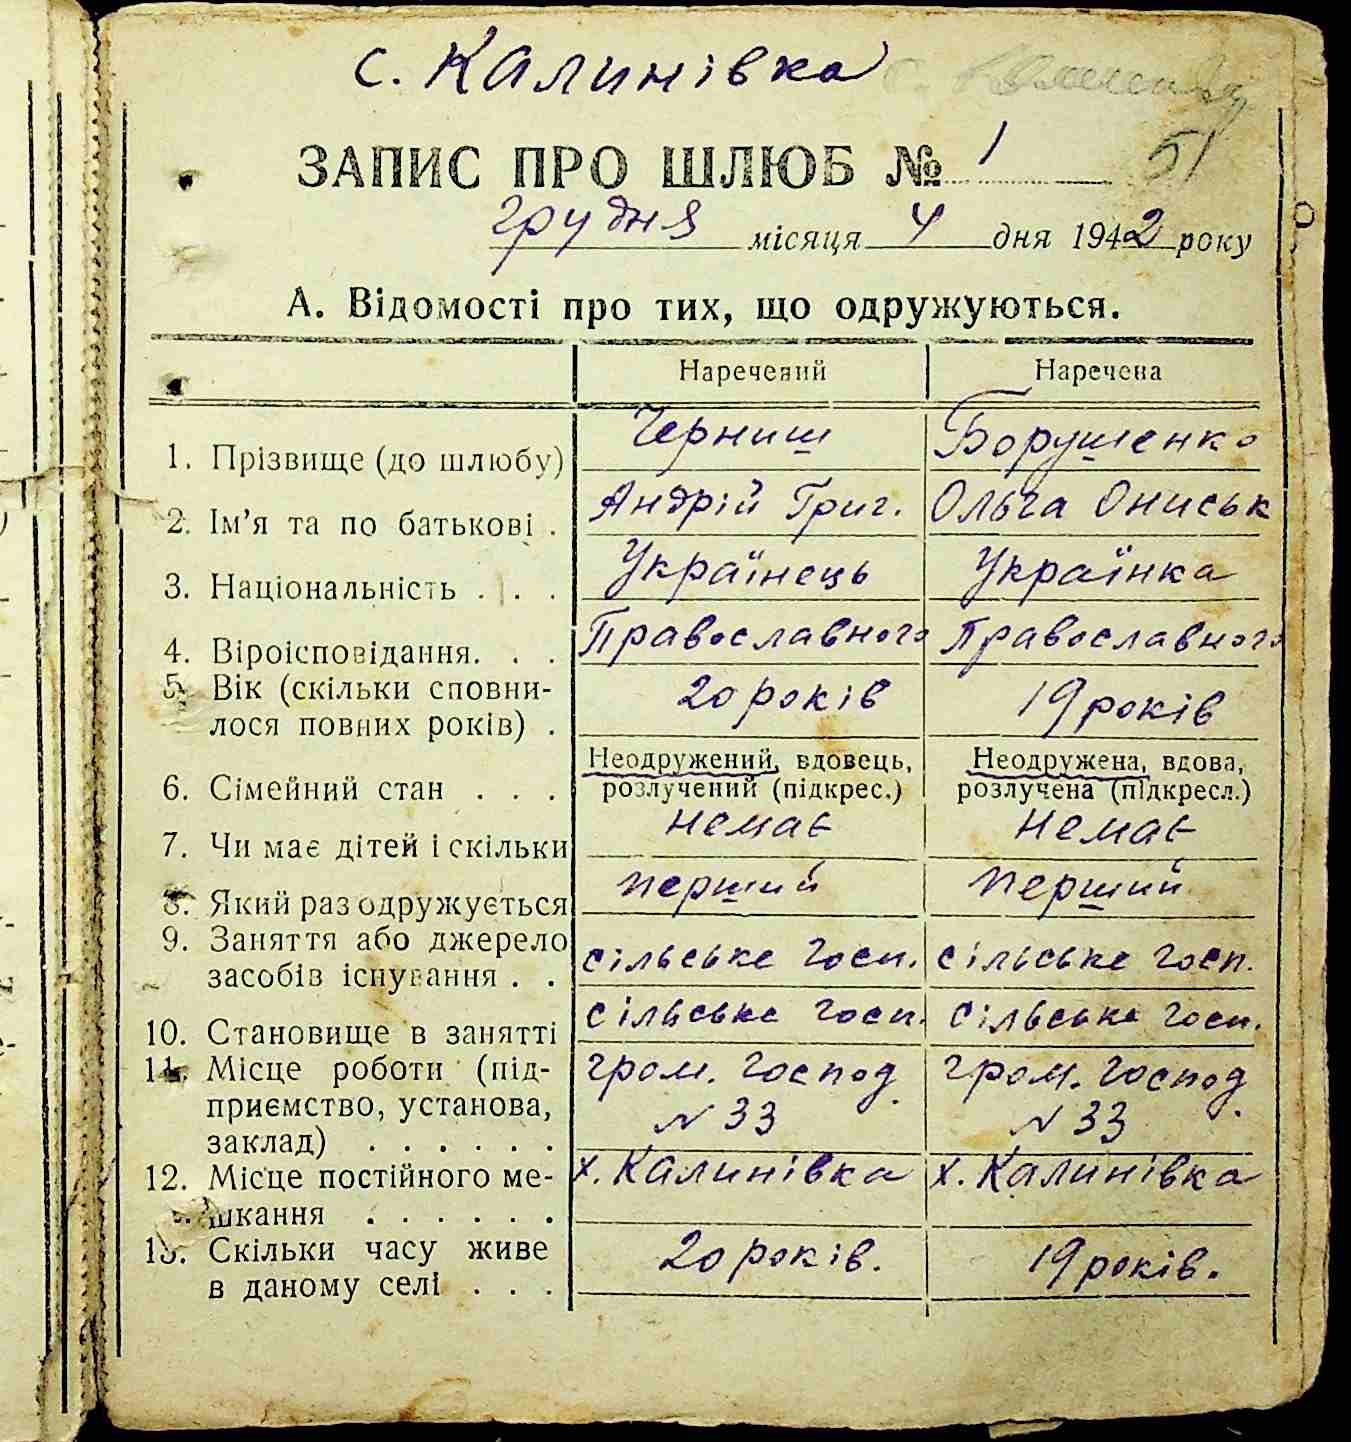 с. Калинівка
51
ЗАПИС ПРО ШЛЮБ № 1
грудня місяця 4 дня 1942 року
А. Відомості про тих, що одружуються.
Наречений Наречена
1. Прізвище (до шлюбу) Черниш Борушенко
2. Ім'я та по батькові . Андрій Григ. Ольга Ониськ
3. Національність . . . Українець Українка
4. Віроісповідання. . . Православного Православного
5. Вік (скільки сповни-
лося повних років) . 20 років 19 років
6. Сімейний стан . . . Неодружений, вдовець, Неодружена, вдова,
розлучений (підкрес.) розлучена (підкресл.)
7. Чи має дітей і скільки немає немає
8. Який раз одружується перший перший
9. Заняття або джерело
засобів існування . . сільське госп. сільське госп.
10. Становище в занятті сільське госп. сільське госп.
11. Місце роботи (під- гром. господ. гром. господ.
приємство, установа, N 33 N 33
заклад) . . . . . .
12. Місце постійного ме- х. Калинівка х. Калинівка
шкання . . . . . .
13. Скільки часу живе 20 років. 19 років.
в даному селі . . .